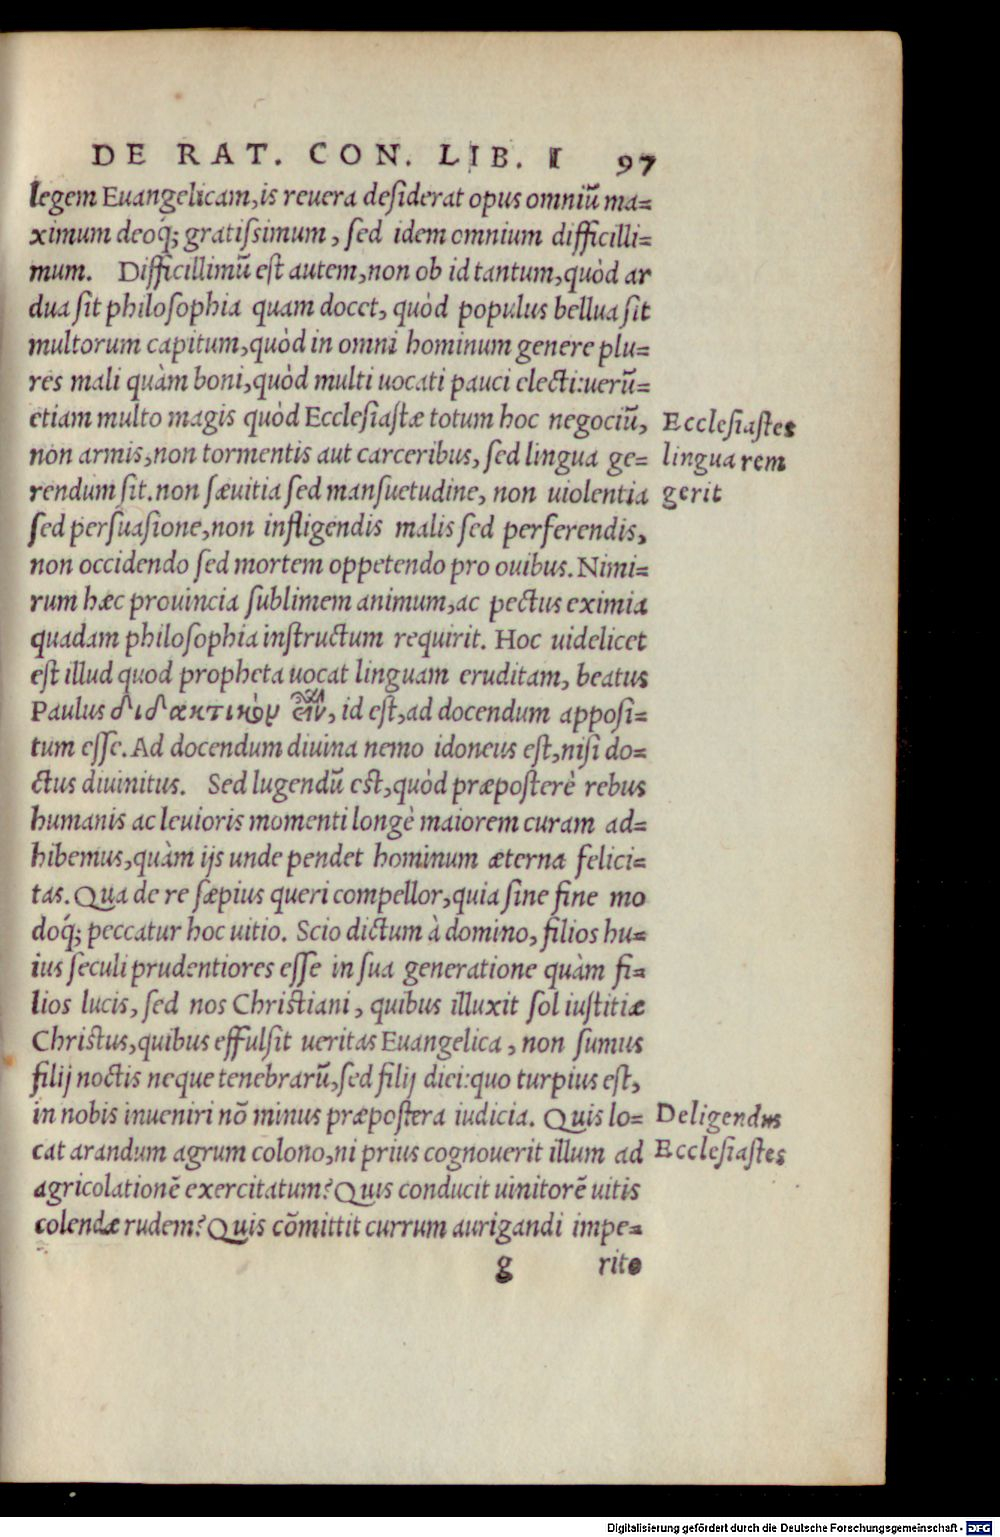 DE RAT. CON. LIB. I 97
legem Euangelicam, is reuera desiderat opus omniū ma=
ximum deoq́; gratissimum, sed idem omnium difficilli=
mum. Difficillimū est autem, non ob id tantum, quòd ar
dua sit philosophia quam docet, quòd populus bellua sit
multorum capitum, quòd in omni hominum genere plu=
res mali quàm boni, quòd multi uocati pauci electi: uerū=
etiam multo magis quòd Ecclesiastæ totum hoc negociū,
non armis, non tormentis aut carceribus, sed lingua ge=
rendum sit. non sæuitia sed mansuetudine, non uiolentia
sed persuasione, non infligendis malis sed perferendis,
non occidendo sed mortem oppetendo pro ouibus. Nimi=
rum hæc prouincia sublimem animum, ac pectus eximia
quadam philosophia instructum requirit. Hoc uidelicet
est illud quod propheta uocat linguam eruditam, beatus
Paulus διδακτικὸν εἶναι, id est, ad docendum apposi=
tum esse. Ad docendum diuina nemo idoneus est, nisi do=
ctus diuinitus. Sed lugendū est, quòd præposterè rebus
humanis ac leuioris momenti longè maiorem curam ad=
hibemus, quàm ijs unde pendet hominum æterna felici=
tas. Qua de re sæpius queri compellor, quia sine fine mo
doq́; peccatur hoc uitio. Scio dictum à domino, filios hu=
ius seculi prudentiores esse in sua generatione quàm fi=
lios lucis, sed nos Christiani, quibus illuxit sol iustitiæ
Christus, quibus effulsit ueritas Euangelica, non sumus
filij noctis neque tenebrarū, sed filij diei: quo turpius est,
in nobis inueniri nō minus præpostera iudicia. Quis lo=
cat arandum agrum colono, ni prius cognouerit illum ad
agricolationē exercitatum? Quis conducit uinitorē uitis
colendæ rudem? Quis cōmittit currum aurigandi impe=
g rito
Ecclesiastes
lingua rem
gerit
Deligendus
Ecclesiastes
Digitalisierung gefördert durch die Deutsche Forschungsgemeinschaft - DFG